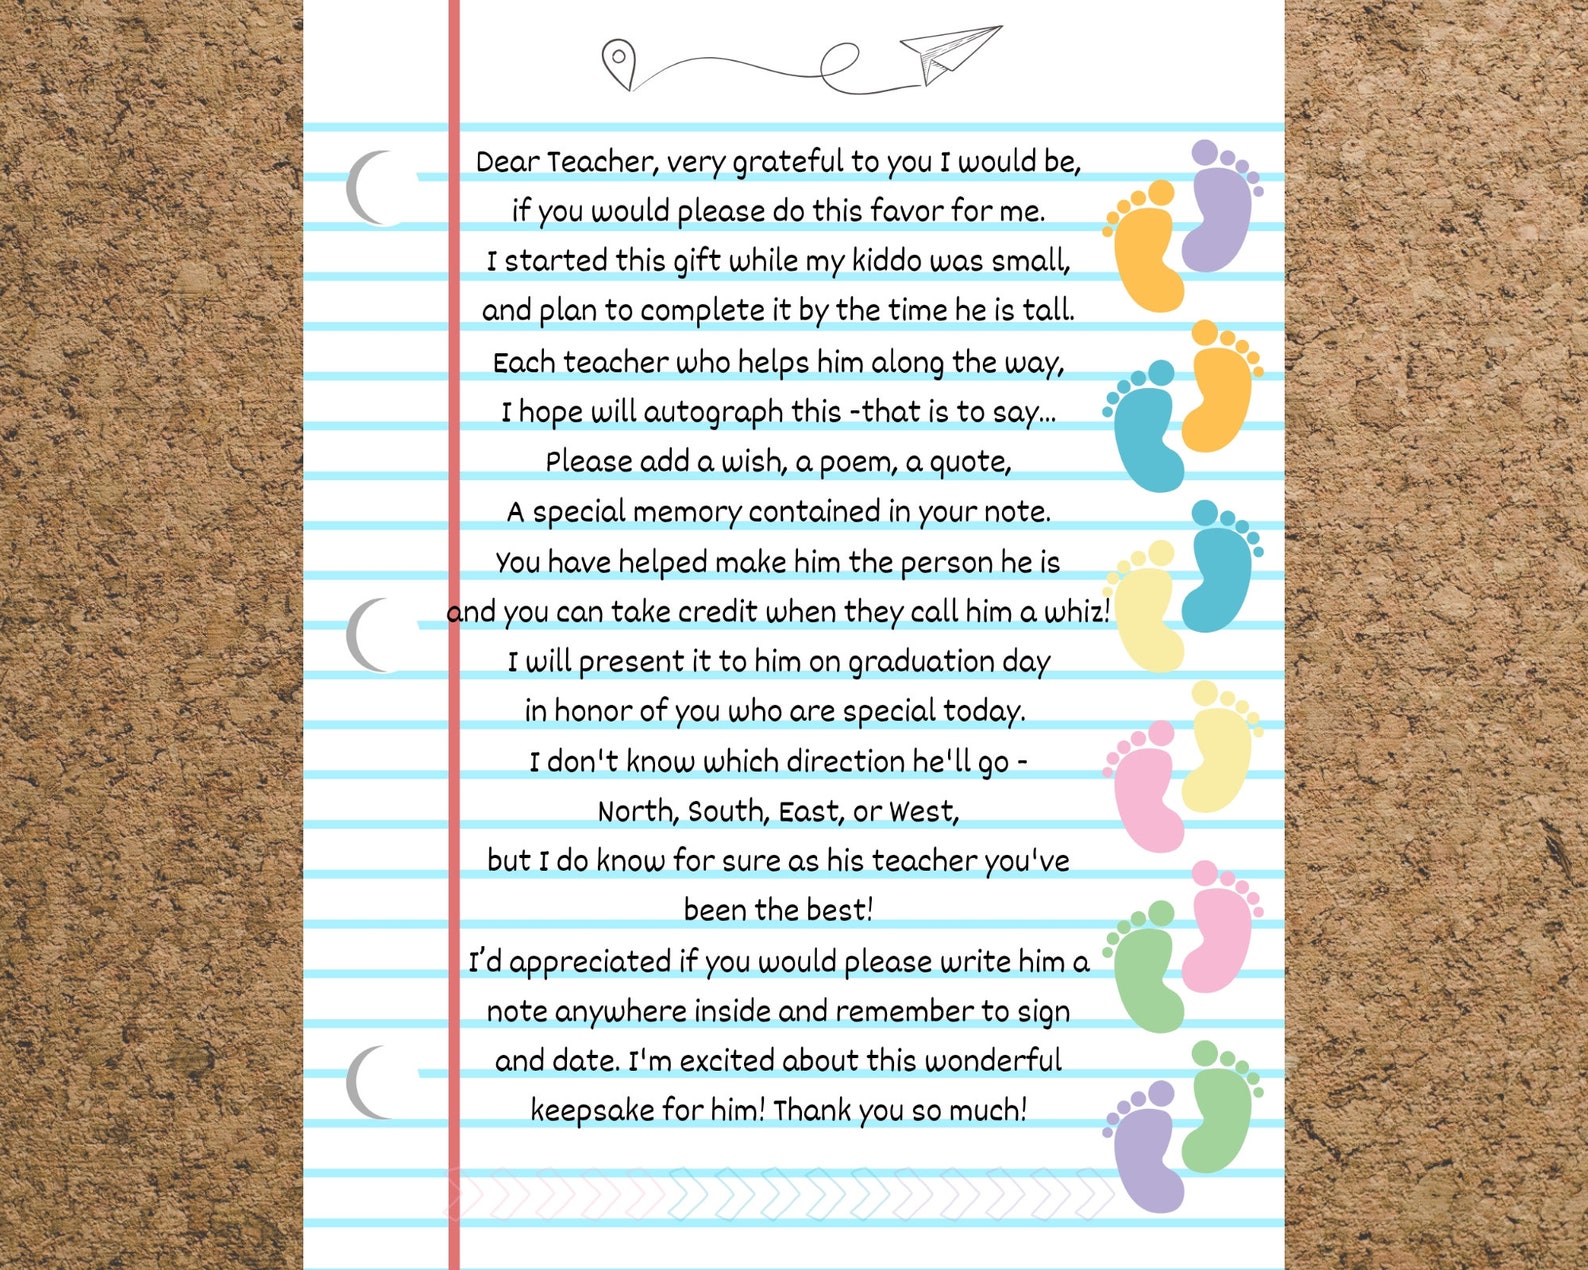 Dear Teacher, very grateful to you I would be,
if you would please do this favor for me.
I started this gift while my kiddo was small,
and plan to complete it by the time he is tall.
Each teacher who helps him along the way,
I hope will autograph this -that is to say...
Please add a wish, a poem, a quote,
A special memory contained in your note.
You have helped make him the person he is
and you can take credit when they call him a whiz!
I will present it to him on graduation day
in honor of you who are special today.
I don't know which direction he'll go -
North, South, East, or West,
but I do know for sure as his teacher you've
been the best!
I’d appreciated if you would please write him a
note anywhere inside and remember to sign
and date. I'm excited about this wonderful
keepsake for him! Thank you so much!